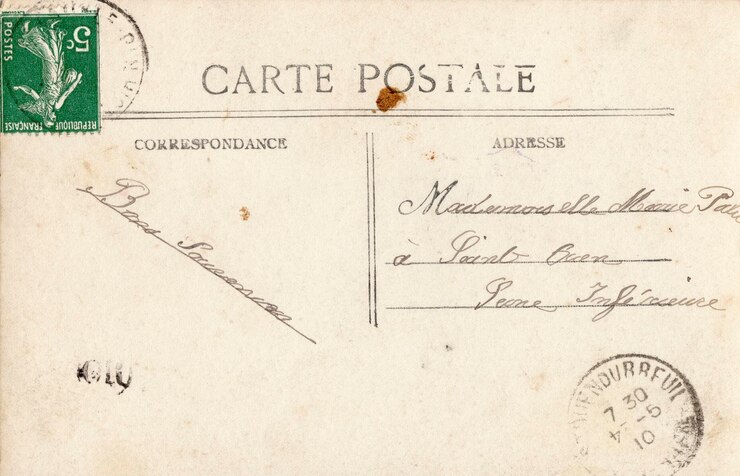 5c
POSTES
REPUBLIQUE FRANÇAISE
CARTE POSTALE
CORRESPONDANCE
ADRESSE
Bons Souvenirs
Mademoiselle Marie
à Saint Ouen
Seine Inférieure
OUENDUBREUIL
7 30
5
10